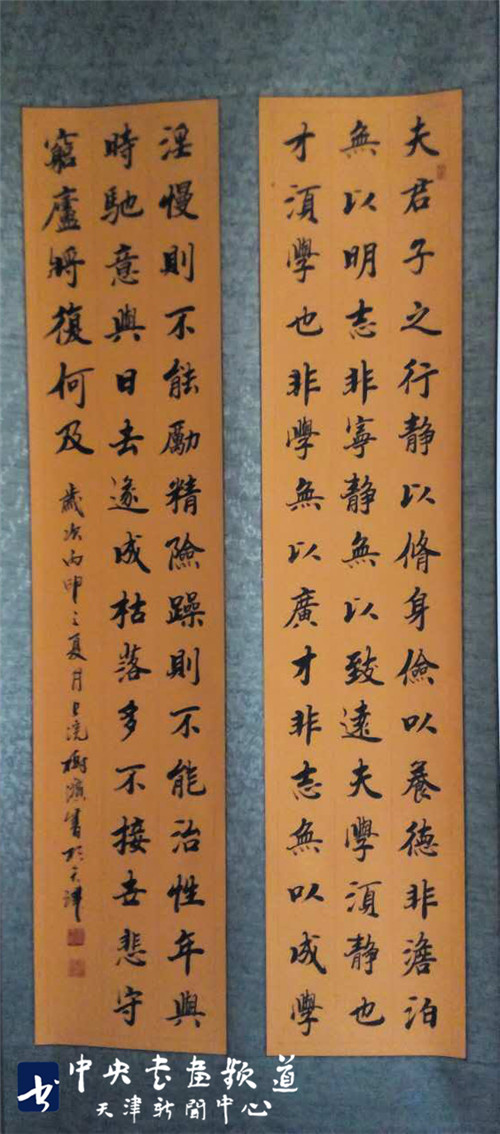 夫君子之行静以脩身儉以養德非澹泊
無以明志非寧静無以致遠夫學須静也
才須學也非學無以廣才非志無以成學
淫慢則不能勵精險躁則不能治性年與
時馳意與日去遂成枯落多不接世悲守
窮廬將復何及
歲次丙申之夏月樹濱書於天津
中央书画频道
天津新聞中心